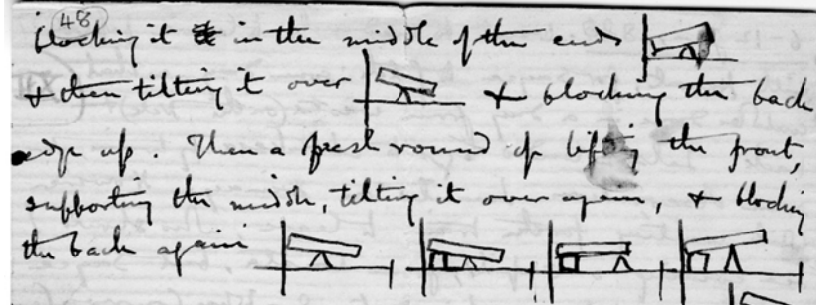 48
blocking it in the middle of the ends
& then tilting it over & blocking the back
edge up. Then a fresh round of lifting the front,
supporting the middle, tilting it over again, & blocking
the back again